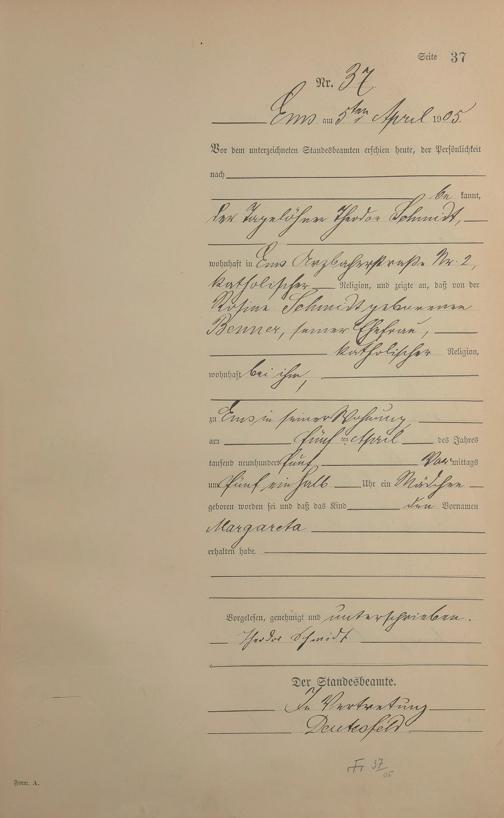 Seite 37
Nr. 37
Ems am 5ten April 1905
Vor dem unterzeichneten Standesbeamten erschien heute, der Persönlichkeit
nach
be kannt,
der Tagelöhner Theodor Schmidt,
wohnhaft in Ems Arzbacherstraße Nr. 2,
katholischer Religion, und zeigte an, daß von der
Schmidt geborenen
Benner, seiner Ehefrau,
katholischer Religion,
wohnhaft bei ihm,
zu Ems in seiner Wohnung
am fünften April des Jahres
tausend neunhundert fünf Vormittags
um fünf ein halb Uhr ein Mädchen
geboren worden sei und daß das Kind den Vornamen
Margareta
erhalten habe.
Vorgelesen, genehmigt und unterschrieben.
Theodor Schmidt
Der Standesbeamte.
In Vertretung
Form. A.
37/05